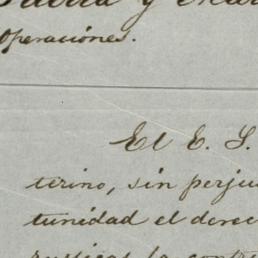 y
Operaciones.
El E. S.
terino, sin perju
tunidad el derec
la contr